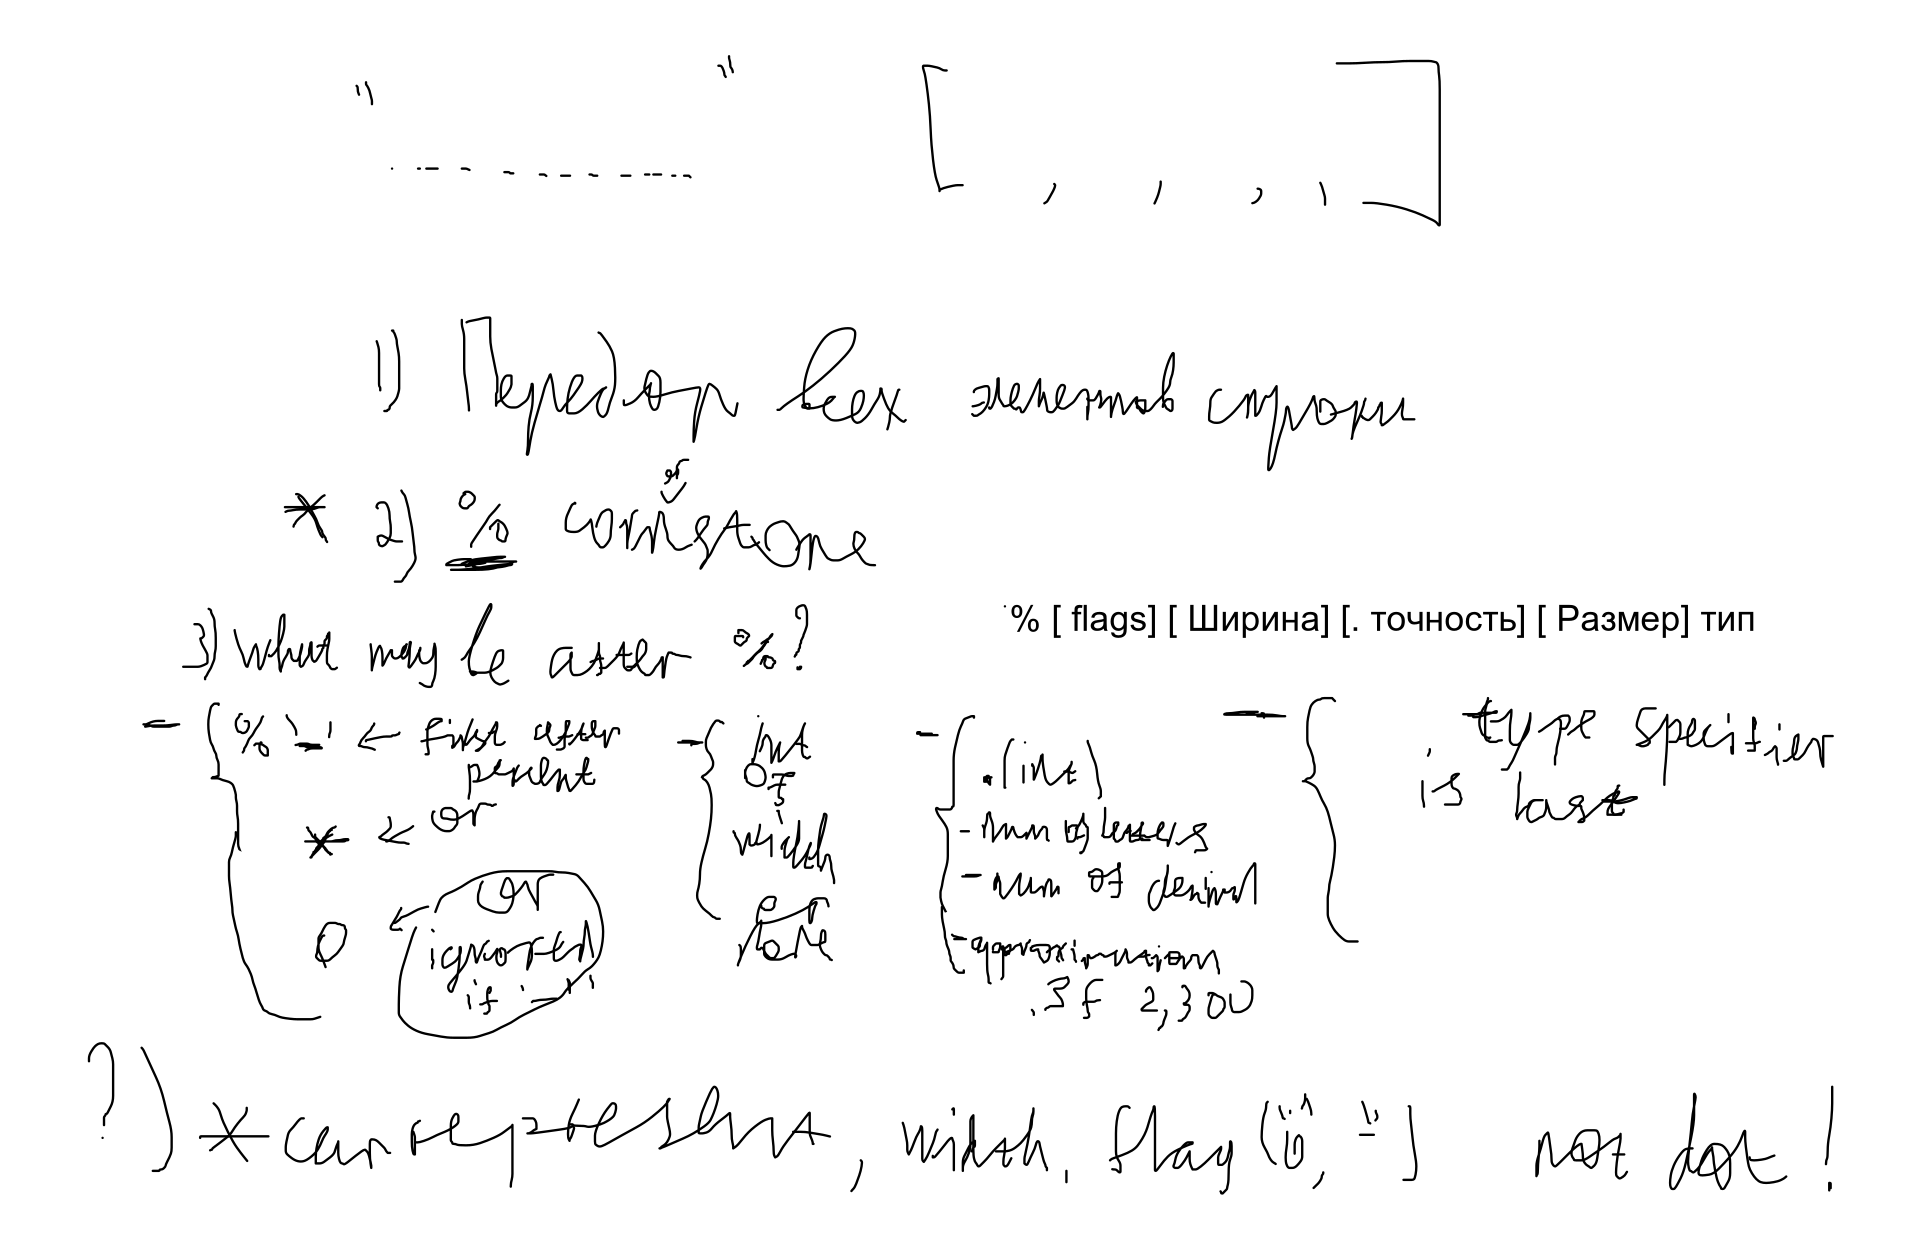 " "
[ , , , , ]
1) Перебор всех элементов строки
* 2) % cornerstone
3) What may be after %?
% [ flags] [ Ширина] [. точность] [ Размер] тип
- { % '-' ← first after
percent
* ← or
0 ← or
ignored
if '-'
- { int
of
width
or
none
- { .(int)
- num of letters
- num of decimal
- approximation
.3f 2,300
- { type specifier
is last
?) * can represent, width, flag ("0", "-") not dot!